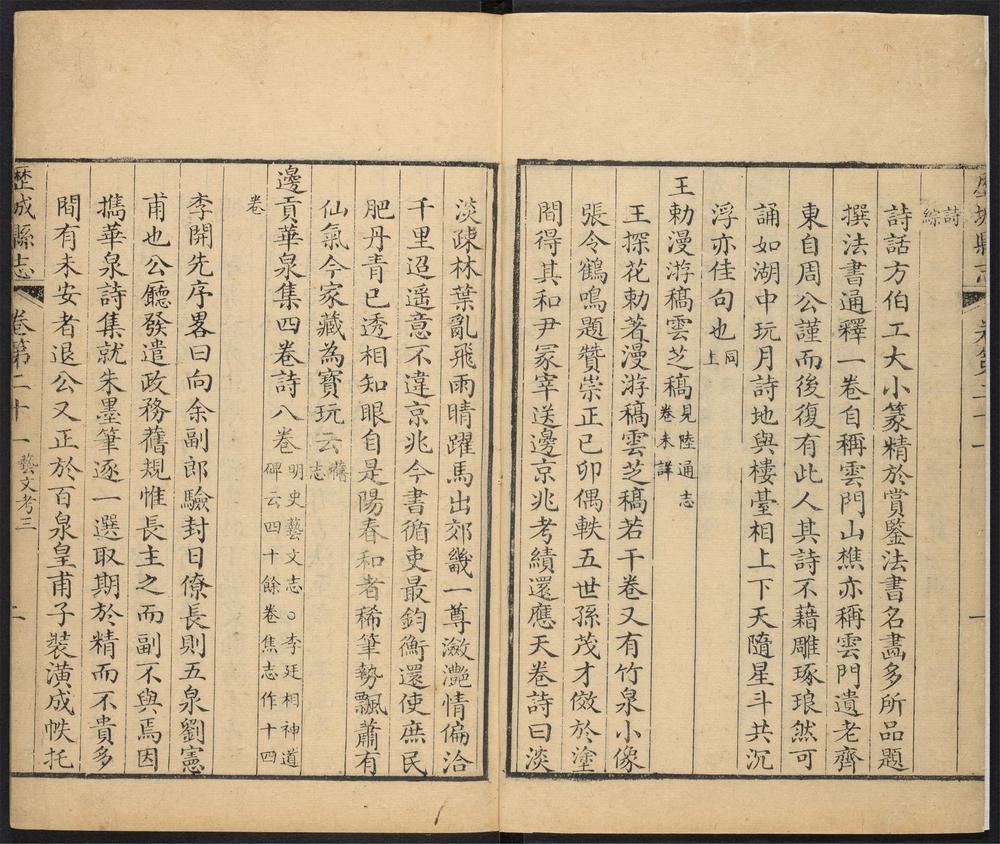 歷城縣志 卷第二十一 一
詩
綜
詩話方伯工大小篆精於賞鑒法書名畫多所品題
撰法書通釋一卷自稱雲門山樵亦稱雲門遺老齊
東自周公謹而後復有此人其詩不藉雕琢琅然可
誦如湖中玩月詩地與樓臺相上下天隨星斗共沉
浮亦佳句也同
上
王勅漫游稿雲芝稿見陸通志
卷未詳
王探花勅著漫游稿雲芝稿若干卷又有竹泉小像
張令鶴鳴題贊崇正己卯偶軼五世孫茂才傚於塗
間得其和尹冢宰送邊京兆考績還應天卷詩曰淡
淡疎林葉亂飛雨晴躍馬出郊畿一尊瀲灩情偏洽
千里迢遥意不違京兆今書循吏最鈞衡還使庶民
肥丹青已透相知眼自是陽春和者稀筆勢飄蕭有
仙氣今家藏為寶玩云舊
志
邊貢華泉集四卷詩八卷明史藝文志○李廷相神道
碑云四十餘卷焦志作十四
卷
李開先序畧曰向余副郎驗封日僚長則五泉劉憲
甫也公廳發遣政務舊規惟長主之而副不與焉因
攜華泉詩集就朱墨筆逐一選取期於精而不貴多
間有未安者退公又正於百泉皇甫子裝潢成帙托
歷城縣志 卷第二十一 藝文考三 二